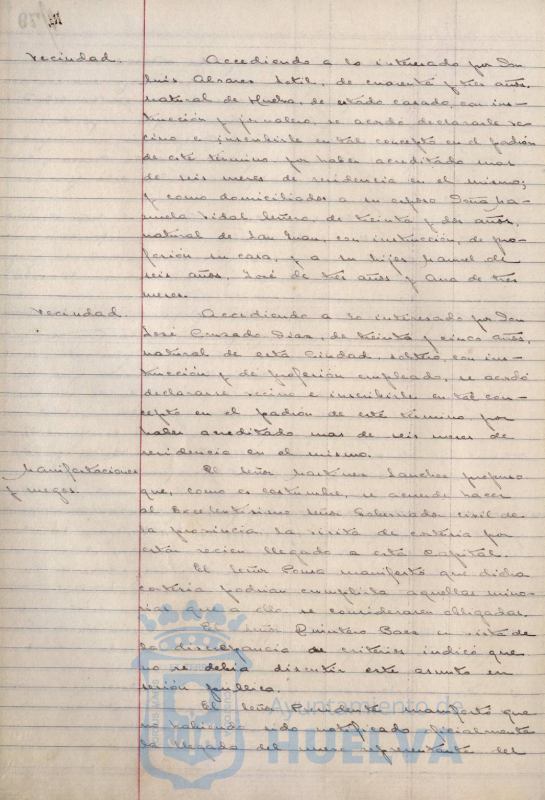 Vecindad. Accediendo a lo interesado por Don
Luis Alvarez, de cuarenta y tres años,
natural de Huelva, de estado casado, con ins-
trucción y jornalero, se acordó declararle ve-
cino e inscribirle en tal concepto en el padrón
de este término por haber acreditado mas
de seis meses de residencia en el mismo;
y como domiciliados a su esposa Doña Ma-
nuela Vidal, de treinta y dos años,
natural de San Juan, con instrucción, de pro-
fesión su casa, y a su hijos Manuel de
seis años, José de tres años y Ana de tres
meses.
Vecindad. Accediendo a lo interesado por Don
José Diaz, de treinta y cinco años,
natural de esta Ciudad, soltero, con ins-
trucción y de profesión empleado, se acordó
declararse vecino e inscribirle en tal con-
cepto en el padrón de este término por
haber acreditado mas de seis meses de
residencia en el mismo.
Manifestaciones El Señor Martinez Sanchez propuso
y ruegos. que, como es costumbre, se acuerde hacer
al Excelentísimo Señor Gobernador civil de
la provincia la visita de cortesía por
estar recien llegado a esta Capital.
El Señor manifestó que dicha
cortesía podrían cumplirla aquellas mino-
rias que a ello se consideraren obligadas.
El Señor Quintero Baez en vista de
la discrepancia de criterios indicó que
no se debia discutir este asunto en
sesión pública.
El Señor Presidente manifestó que
no habiendo sido notificado oficialmente
la llegada del nuevo representante del
Ayuntamiento de
HUELVA